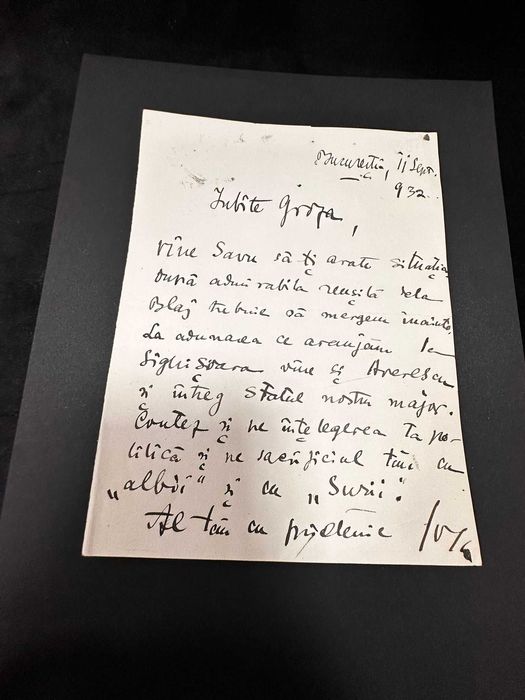 București, 11 Sept.
932.
Iubite Groza,
vine Savu să ți arate situația
După admirabila reușită dela
Blaj trebuie să mergem înainte.
La adunarea ce aranjăm la
Sighișoara vine și Averescu
și întreg statul nostru major.
Contez și pe înțelegerea ta po-
litică și pe sacrificiul tău cu
„albii” și cu „Surii”.
Al tău cu prietenie